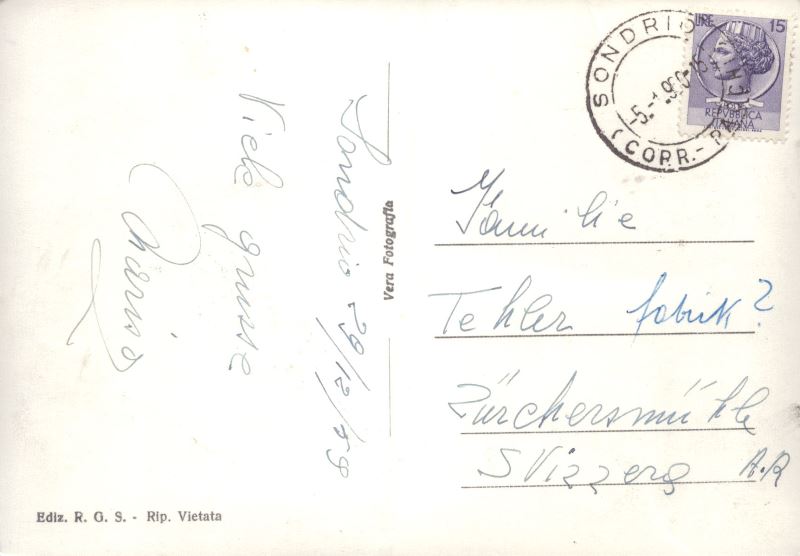 Sondrio 29/12/59
Viele grüsse
Mariso
Vera Fotografia
SONDRIO
-5.-1.960-15
(CORR.-PACCHI
LIRE 15
REPVBBLICA
ITALIANA
Familie
Tehler fabrik?
Zürchersmühle
SVizzera A.R
Ediz. R. G. S. - Rip. Vietata